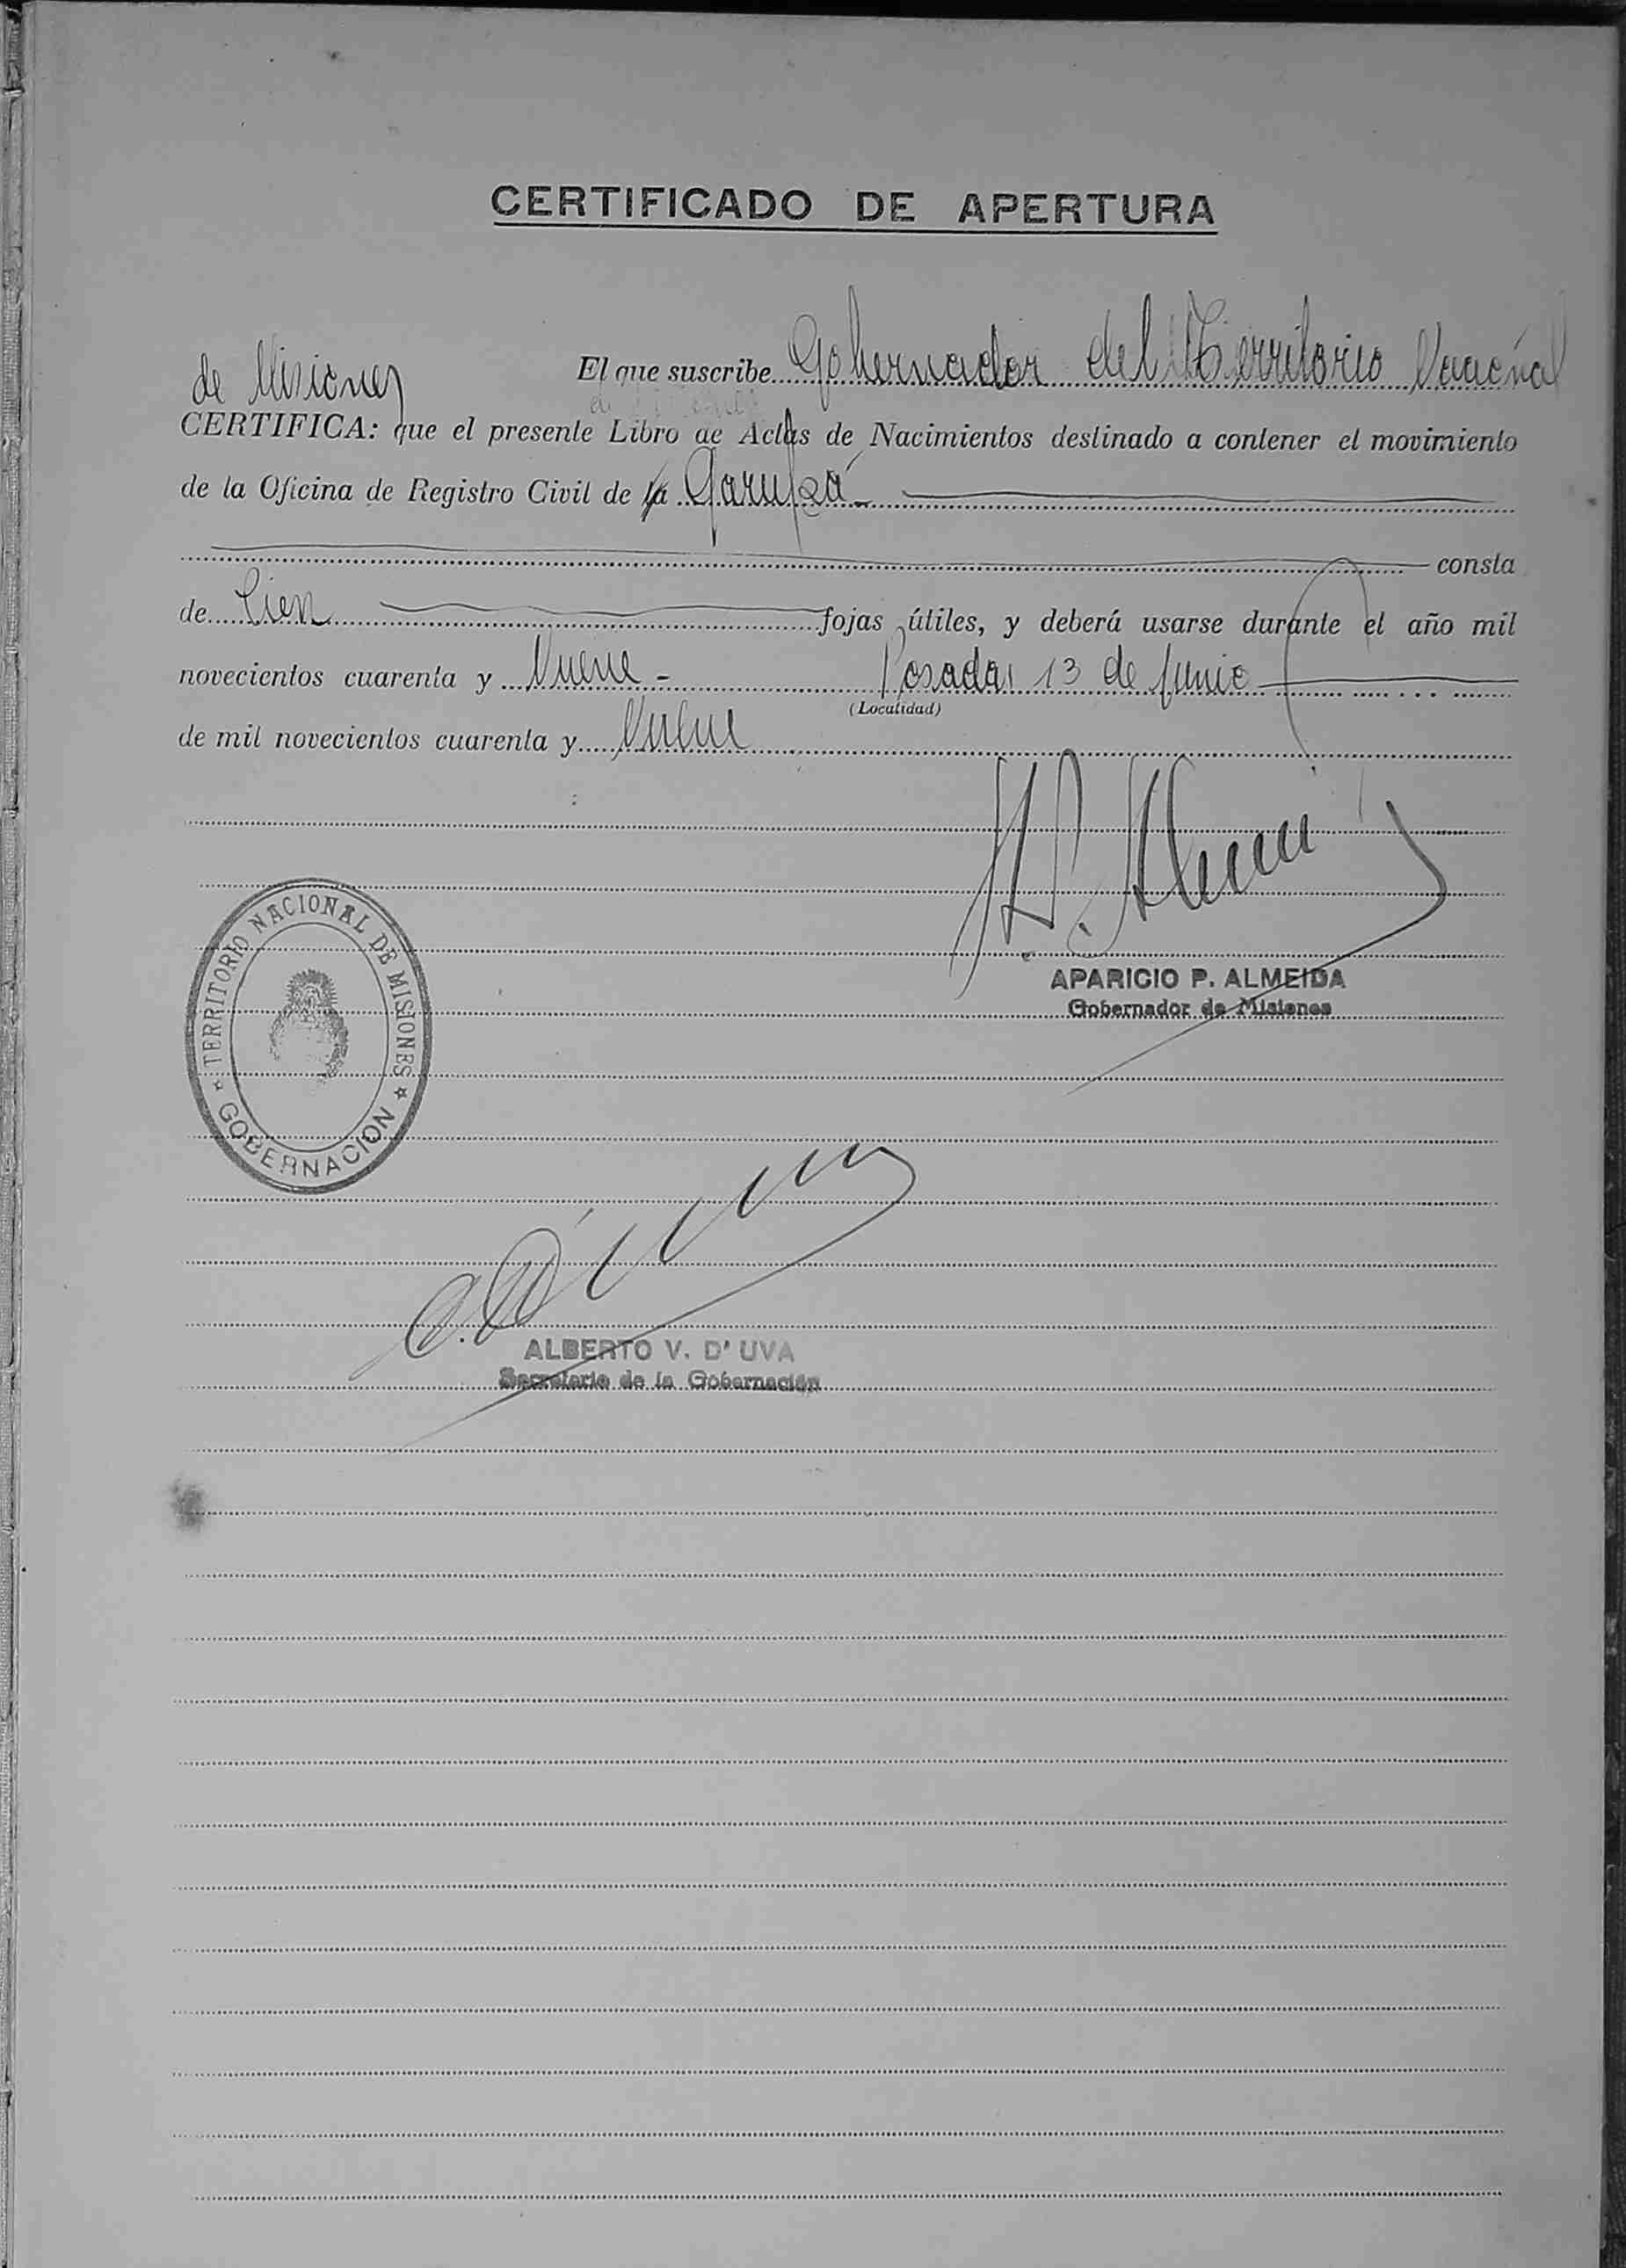 CERTIFICADO DE APERTURA
El que suscribe Gobernador del Territorio Nacional
de Misiones
CERTIFICA: que el presente Libro de Actas de Nacimientos destinado a contener el movimiento
de la Oficina de Registro Civil de la Garupá
consta
de Cien fojas útiles, y deberá usarse durante el año mil
novecientos cuarenta y Nueve - Posadas 13 de Junio
(Localidad)
de mil novecientos cuarenta y Nueve
APARICIO P. ALMEIDA
Gobernador de Misiones
TERRITORIO NACIONAL DE MISIONES
GOBERNACION
ALBERTO V. D' UVA
Secretario de la Gobernación